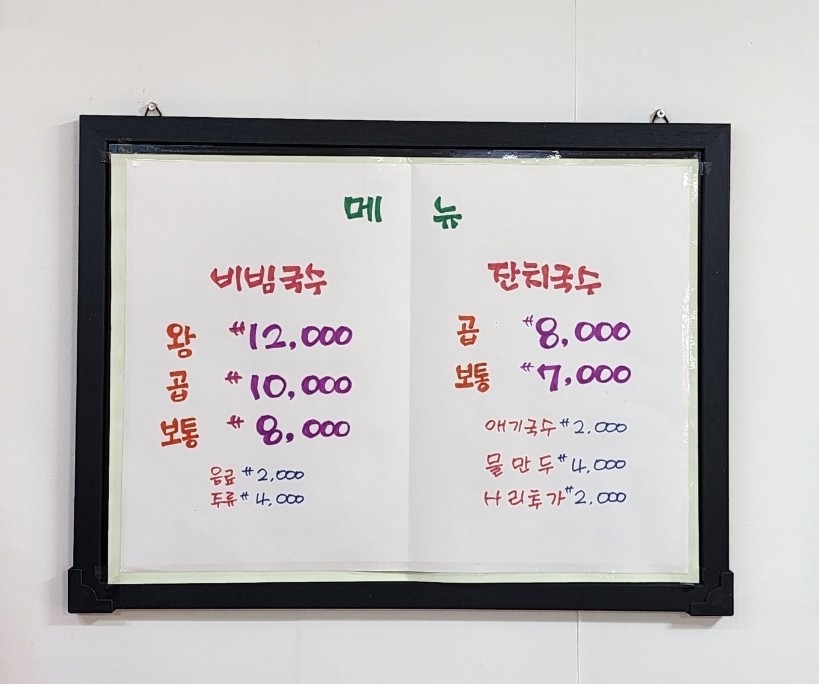 메 뉴
비빔국수
왕 ₩12,000
곱 ₩10,000
보통 ₩8,000
음료 ₩2,000
주류 ₩4,000
잔치국수
곱 ₩8,000
보통 ₩7,000
애기국수 ₩2,000
물만두 ₩4,000
사리추가 ₩2,000